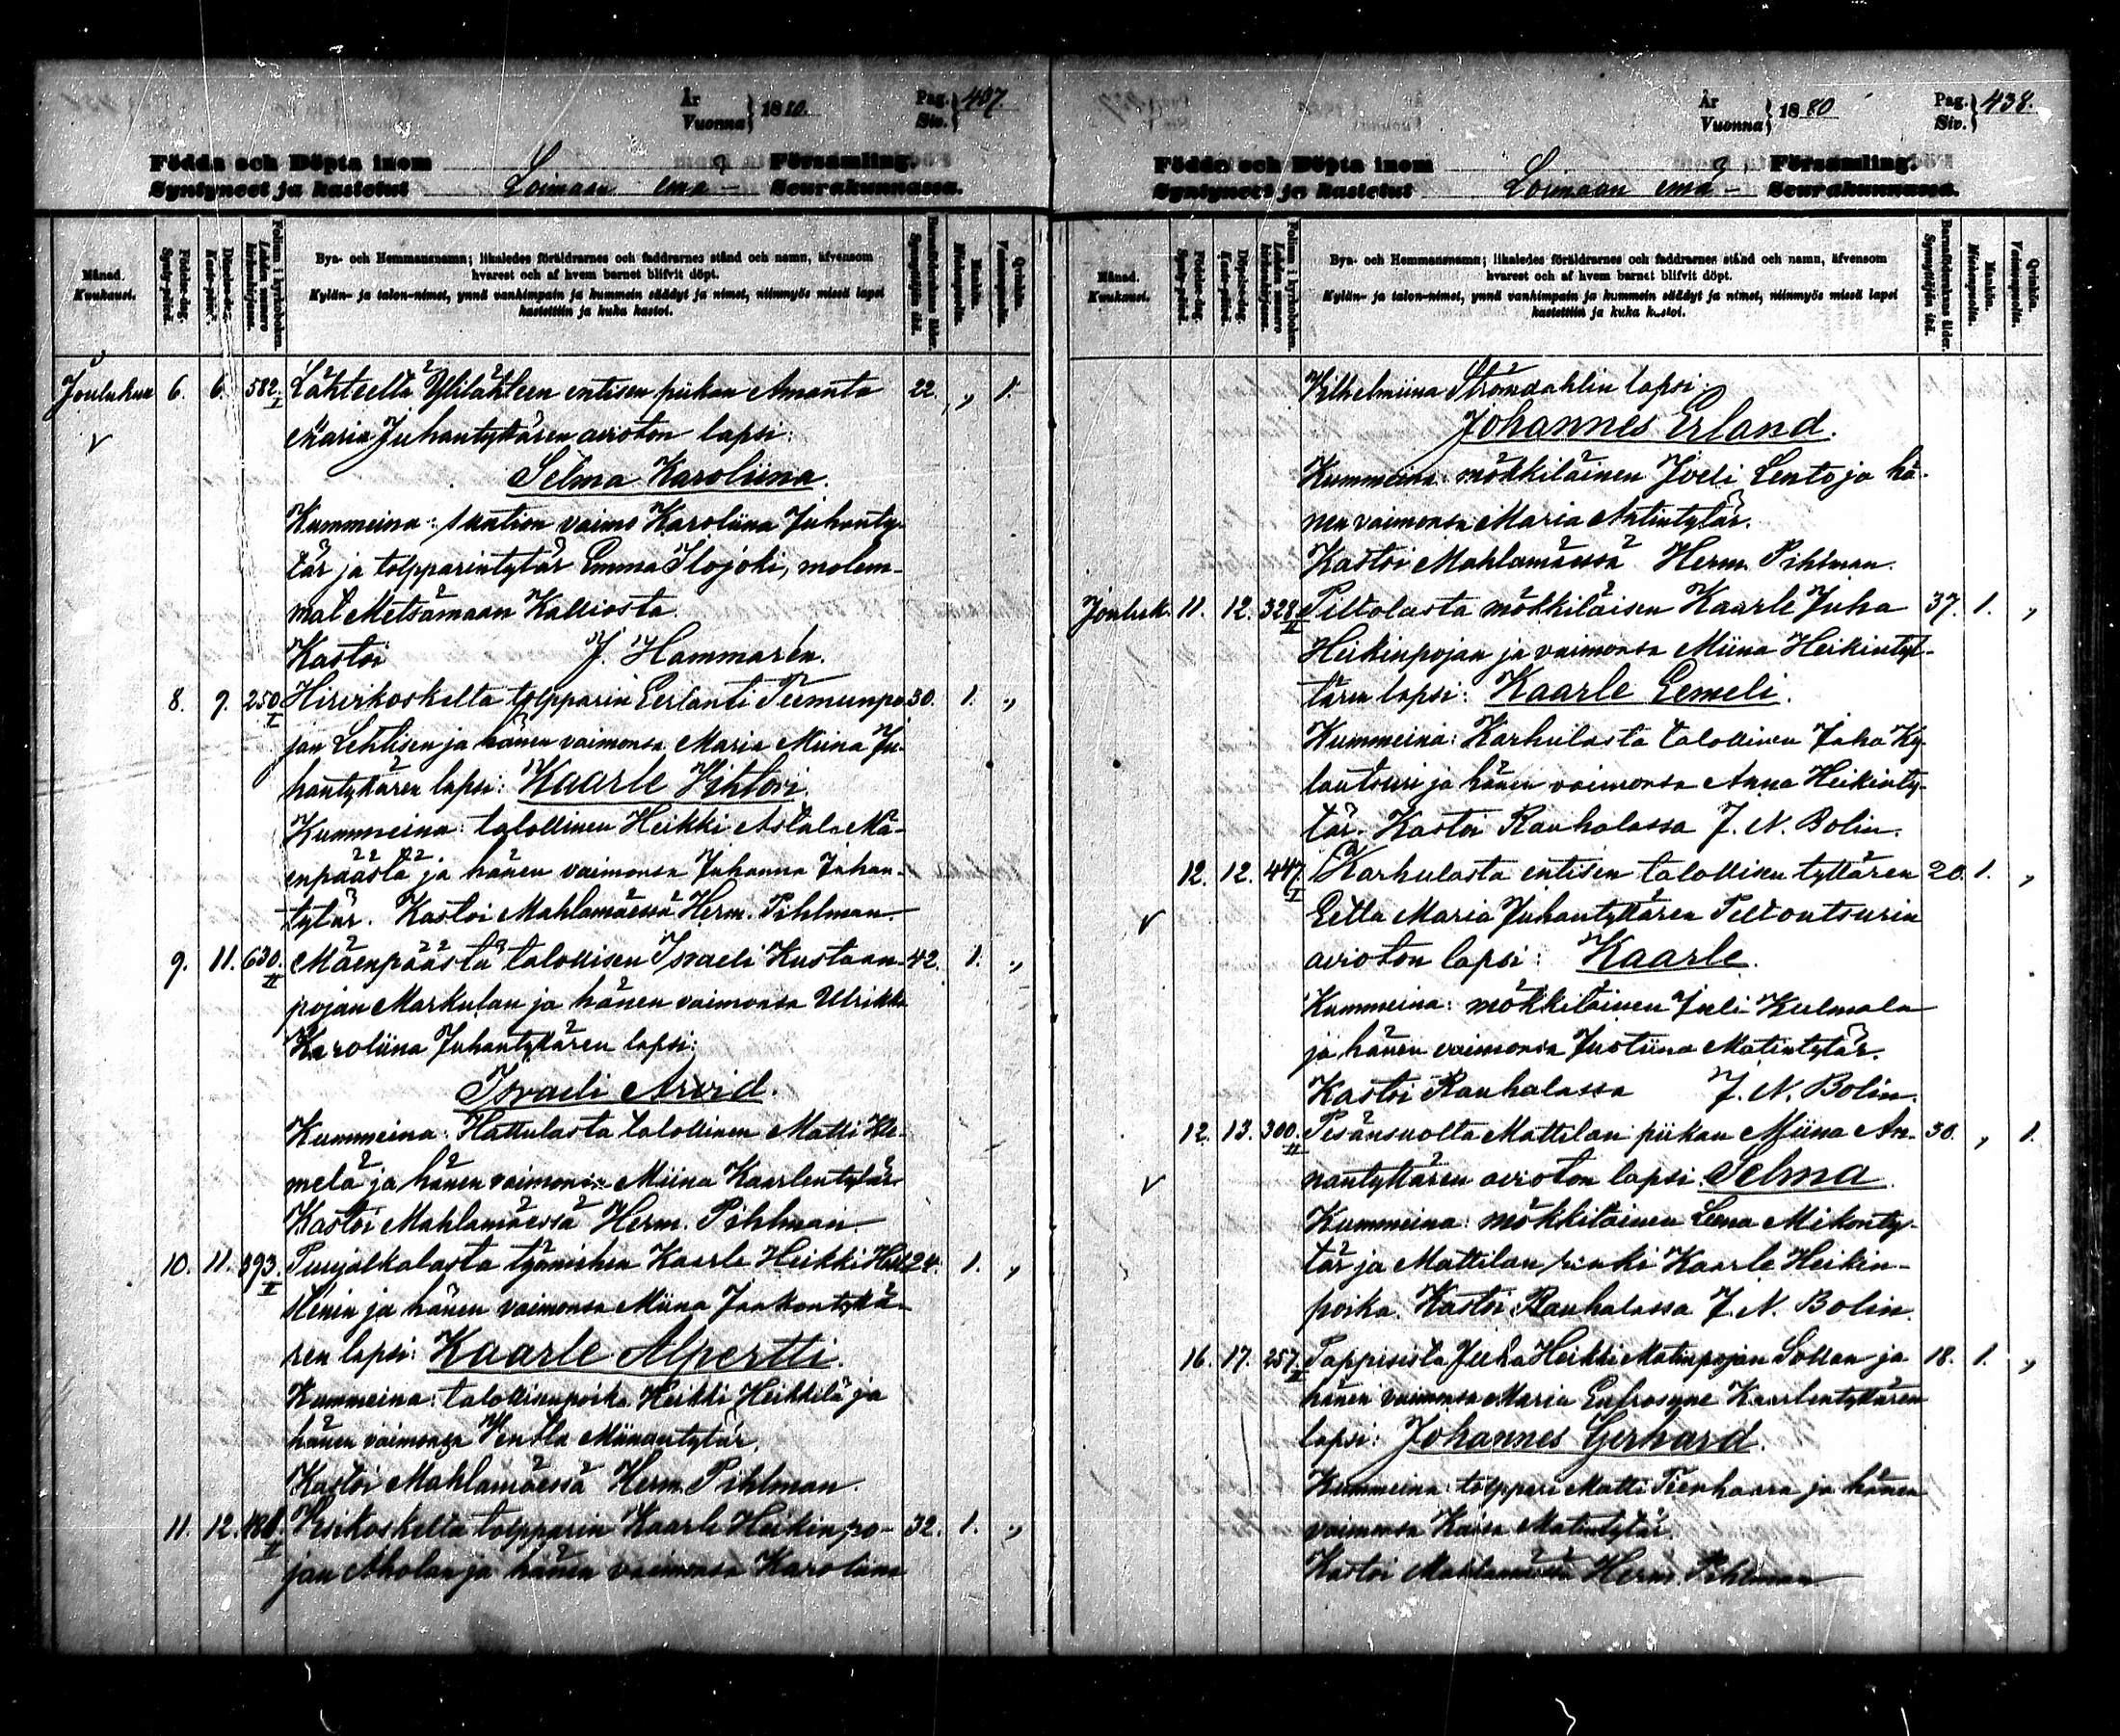 År
Vuonna } 1880.
Pag.
Siv. } 407.
Födda och Döpta inom
Syntyneet ja kastetut Loimaan emä- Församling.
Seurakunnassa.
Månad.
Kuukausi.
Födelse-dag.
Synty-päivä.
Döpelse-dag.
Kaste-päivä.
Folium i kyrkoboken.
Lehden numero kirkonkirjassa.
Bya- och Hemmansnamn; likaledes föräldrarnes och faddrarnes stånd och namn, äfvensom
hvarest och af hvem barnet blifvit döpt.
Kylän- ja talon-nimet, ynnä vanhimpain ja kummein säädyt ja nimet, niinmyös missä lapsi
kastettiin ja kuka kastoi.
Barnaföderskans ålder.
Synnyttäjän ikä.
Mankön.
Miehenpuolia.
Qvinkön.
Vaimonpuolia.
Joulukuu 6. 6. 582. I Lähteeltä Ylilähteen entisen piikan Amanta 22. „ 1.
Maria Juhantyttären avioton lapsi:
Selma Karoliina.
Kummeina: vaimo Karoliina Juhanty-
tär ja tolpparintytär Emma Ilojoki, molem-
mat Metsämaan Kalliosta.
Kastoi J. Hammarén.
8. 9. 250 I Hirvikoskelta tolpparin Eerlanti Teemunpo- 30. 1. „
jan Lehtisen ja hänen vaimonsa Maria Miina Ju-
hantyttären lapsi: Kaarle Vihtori.
Kummeina: talollinen Heikki Astala Mä-
enpäästä ja hänen vaimonsa Juhanna Juhan-
tytär. Kastoi Mahlamäessä Herm. Pihlman.
9. 11. 630. II Mäenpäästä talollisen Israeli Kustaan- 42. 1. „
pojan Markulan ja hänen vaimonsa Ulrikka
Karoliina Juhantyttären lapsi:
Israeli Arvid.
Kummeina: Hattulasta talollinen Matti Kle-
melä ja hänen vaimonsa Miina Kaarlentytär
Kastoi Mahlamäessä Herm. Pihlman.
10. 11. 393. I Puujalkalasta työmiehen Kaarle Heikki 24. 1. „
ja hänen vaimonsa Miina Jaakontyttä-
ren lapsi: Kaarle Alpertti.
Kummeina: talollisenpoika Heikki Heikkilä ja
hänen vaimonsa Ventla
Kastoi Mahlamäessä Herm. Pihlman.
11. 12. II Vesikoskelta tolpparin Kaarle Heikinpo- 32. 1. „
jan Aholan ja hänen vaimonsa Karoliina
År
Vuonna } 1880
Pag.
Siv. } 438.
Födda och Döpta inom
Syntyneet ja kastetut Loimaan emä- Församling.
Seurakunnassa.
Månad.
Kuukausi.
Födelse-dag.
Synty-päivä.
Döpelse-dag.
Kaste-päivä.
Folium i kyrkoboken.
Lehden numero kirkonkirjassa.
Bya- och Hemmansnamn; likaledes föräldrarnes och faddrarnes stånd och namn, äfvensom
hvarest och af hvem barnet blifvit döpt.
Kylän- ja talon-nimet, ynnä vanhimpain ja kummein säädyt ja nimet, niinmyös missä lapsi
kastettiin ja kuka kastoi.
Barnaföderskans ålder.
Synnyttäjän ikä.
Mankön.
Miehenpuolia.
Qvinkön.
Vaimonpuolia.
Vilhelmiina Strömdahlin lapsi:
Johannes Erland.
Kummeina: mökkiläinen Joeli Lento ja hä-
nen vaimonsa Maria Antintytär.
Kastoi Mahlamäessä Herm. Pihlman.
Jouluk. 11. 12. 328. II Peltolasta mökkiläisen Kaarle Juha 37. 1. „
Heikinpojan ja vaimonsa Miina Heikintyt-
tären lapsi: Kaarle Eemeli.
Kummeina: Karhulasta talollinen Juha Ky-
läutsuri ja hänen vaimonsa Anna Heikinty-
tär. Kastoi Rauhalassa J. N. Bolin.
12. 12. 447. I Karhulasta entisen talollisen tyttären 20. 1. „
Eetla Maria Juhantyttären Peltoutsurin
avioton lapsi: Kaarle.
Kummeina: mökkiläinen Juli Kulmala
ja hänen vaimonsa Justiina Matintytär.
Kastoi Rauhalassa J. N. Bolin.
12. 13. 300. II Pesänsuolta Mattilan piikan Miina An- 30. „ 1.
nantyttären avioton lapsi: Selma.
Kummeina: mökkiläinen Leena Mikonty-
tär ja Mattilan renki Kaarle Heikin-
poika. Kastoi Rauhalassa J. N. Bolin.
16. 17. 257. II Pappisista Juha Heikki Matinpojan Sollan ja 18. 1. „
hänen vaimonsa Maria Eufrosyne Kaarlentyttären
lapsi: Johannes Gerhard.
Kummeina: tolppari Matti Tienhaara ja hänen
vaimonsa Kaisa Matintytär.
Kastoi Mahlamäessä Herm. Pihlman